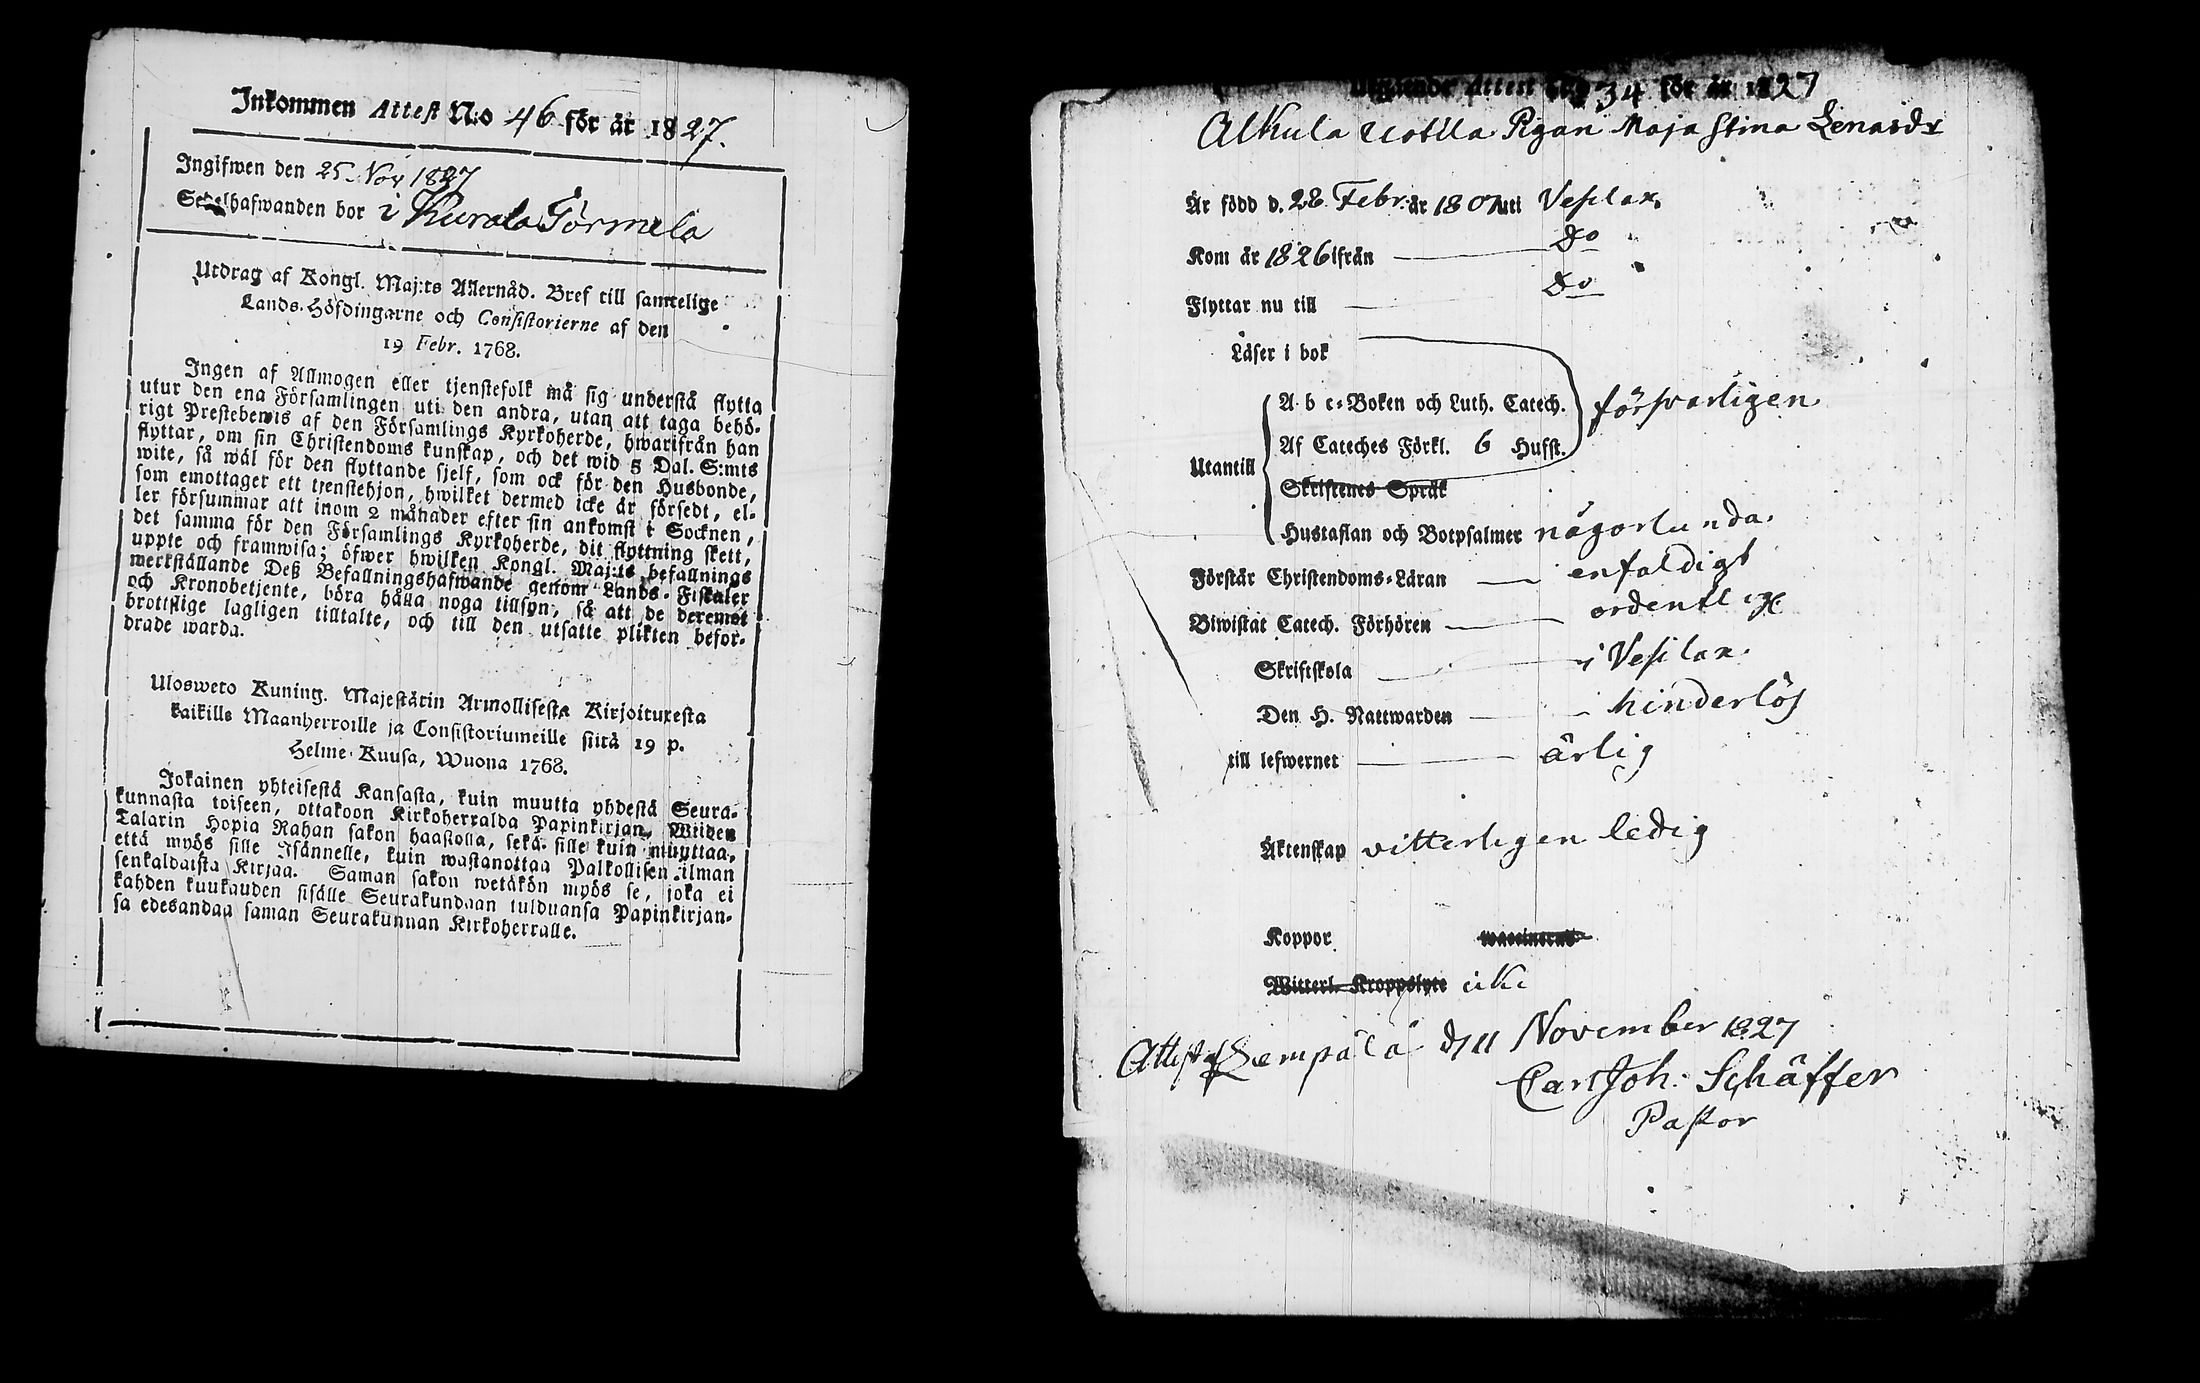 Inkommen Attest N:o 46 för år 1827.
Ingifwen den 25 Nov 1827
Sedelhafwanden bor i Kurala Törmelä
Utdrag af Kongl. Maj:ts Allernåd. Bref till samtelige
Lands-Höfdingarne och Consistorierne af den
19 Febr. 1768.
Ingen af Allmogen eller tjenstefolk må sig understå flytta
utur den ena Församlingen uti den andra, utan att taga behö-
rigt Prestebewis af den Församlings Kyrkoherde, hwarifrån han
flyttar, om sin Christendoms kunskap, och det wid 5 Dal. S:mts
wite, så wäl för den flyttande sjelf, som ock för den Husbonde,
som emottager ett tjenstehjon, hwilket dermed icke är försedt, el-
ler försummar att inom 2 månader efter sin ankomst i Socknen,
det samma för den Församlings Kyrkoherde, dit flyttning skett,
uppte och framwisa; öfwer hwilken Kongl. Maj:ts befallnings
werkställande Deß Befallningshafwande genom Lands-Fiskaler
och Kronobetjente, böra hålla noga tillsyn, så att de deremot
brottslige lagligen tilltalte, och till den utsatte plikten befor-
drade warda.
Ulosweto Kuning. Majestätin Armollisesta Kirjoituxesta
kaikille Maanherroille ja Consistoriumeille siitä 19 p.
Helme-Kuusa, Wuona 1768.
Jokainen yhteisestä Kansasta, kuin muutta yhdestä Seura-
kunnasta toiseen, ottakoon Kirkoherralda Papinkirjan, Wiiden
Talarin Hopia Rahan sakon haastolla, sekä sille kuin muuttaa,
että myös sille Isännelle, kuin wastanottaa Palkollisen ilman
senkaldaista Kirjaa. Saman sakon wetäkön myös se, joka ei
kahden kuukauden sisälle Seurakundaan tulduansa Papinkirjan-
sa edesandaa saman Seurakunnan Kirkoherralle.
Utgående Attest N:o 34 för år 1827
Alkula Uotila Pigan Maja Stina Lenasdr
Är född d. 28 Febr. år 1807 uti Vesilax.
Kom år 1826 ifrån Do
Flyttar nu till Do
Läser i bok
A b c-Boken och Luth. Catech. försvarligen
Af Cateches Förkl. 6 Hufst.
Utantill
Skriftenes Språk
Hustaflan och Botpsalmer någorlunda.
Förstår Christendoms-Läran enfaldigt
Biwistat Catech. Förhören ordentligt
Skriftskola i Vesilax.
Den H. Nattwarden hinderlös
till lefwernet ärlig
Äktenskap vitterligen ledig
Koppor waccinerat
Witterl. Kroppslyte
Attest af Lempälä d 11 November 1827
Carl Joh: Schäffer
Pastor